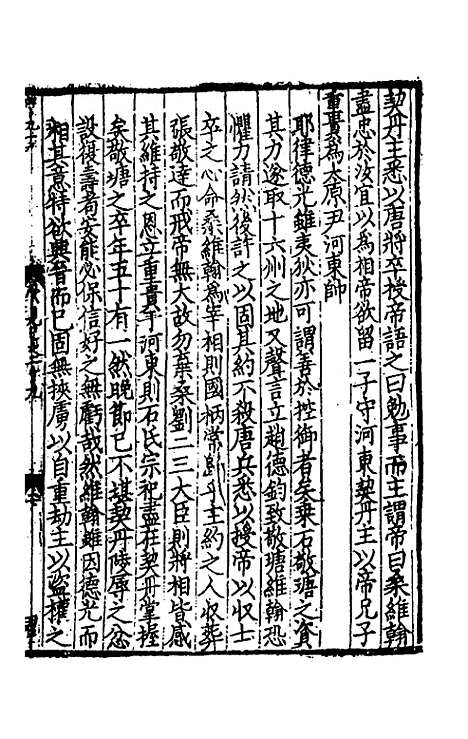 契丹主悉以唐將卒授帝語之曰勉事而主謂帝曰桑維翰
盡忠於汝宜以為相帝欲留一子守河東契丹主以帝兄子
重貴為太原尹河東帥
耶律德光雖夷狄亦可謂善於控御者矣乗石敬瑭之資
其力遂取十六州之地又聲言立趙德鈞致敬瑭維翰恐
懼力請然後許之以固其約不殺唐兵悉以授帝以收士
卒之心命桑維翰為宰相則國柄常歸于主約之人收葬
張敬達而戒帝無大故勿棄桑劉二三大臣則將相皆感
其維持之恩立重貴于河東則石氏宗祀盡在契丹掌握
矣敬瑭之卒年五十有一然晚節已不堪契丹陵辱之忿
設復壽考安能必保信好之無虧哉然維翰雖因德光而
相其意特欲興晉而已固無挾虜以自重劫主以盗權之